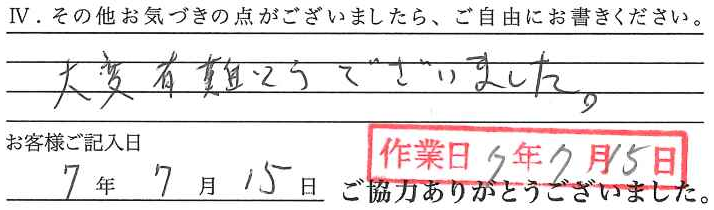 Ⅳ．その他お気づきの点がございましたら、ご自由にお書きください。
大変有難とうございました。
お客様ご記入日
7年7月15日
作業日7年7月15日
ご協力ありがとうございました。